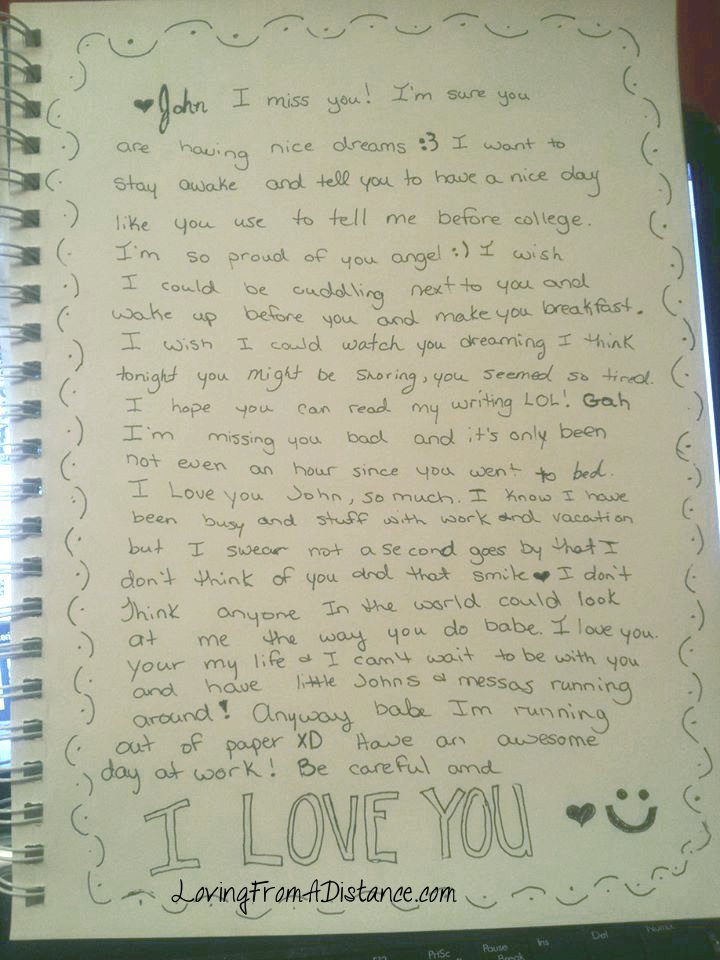 ♥ John I miss you! I'm sure you
are having nice dreams :3 I want to
stay awake and tell you to have a nice day
like you use to tell me before college.
I'm so proud of you angel :) I wish
I could be cuddling next to you and
wake up before you and make you breakfast.
I wish I could watch you dreaming I think
tonight you might be snoring, you seemed so tired.
I hope you can read my writing LOL! Gah
I'm missing you bad and it's only been
not even an hour since you went to bed.
I Love you John, so much. I know I have
been busy and stuff with work and vacation
but I swear not a second goes by that I
don't think of you and that smile ♥ I don't
think anyone In the world could look
at me the way you do babe. I love you.
your my life & I can't wait to be with you
and have little Johns & messas running
around! Anyway babe Im running
out of paper XD Have an awesome
day at work! Be careful and
I LOVE YOU ♥
LovingFromADistance.com
PrtSc
Pause
Break
Ins
Del